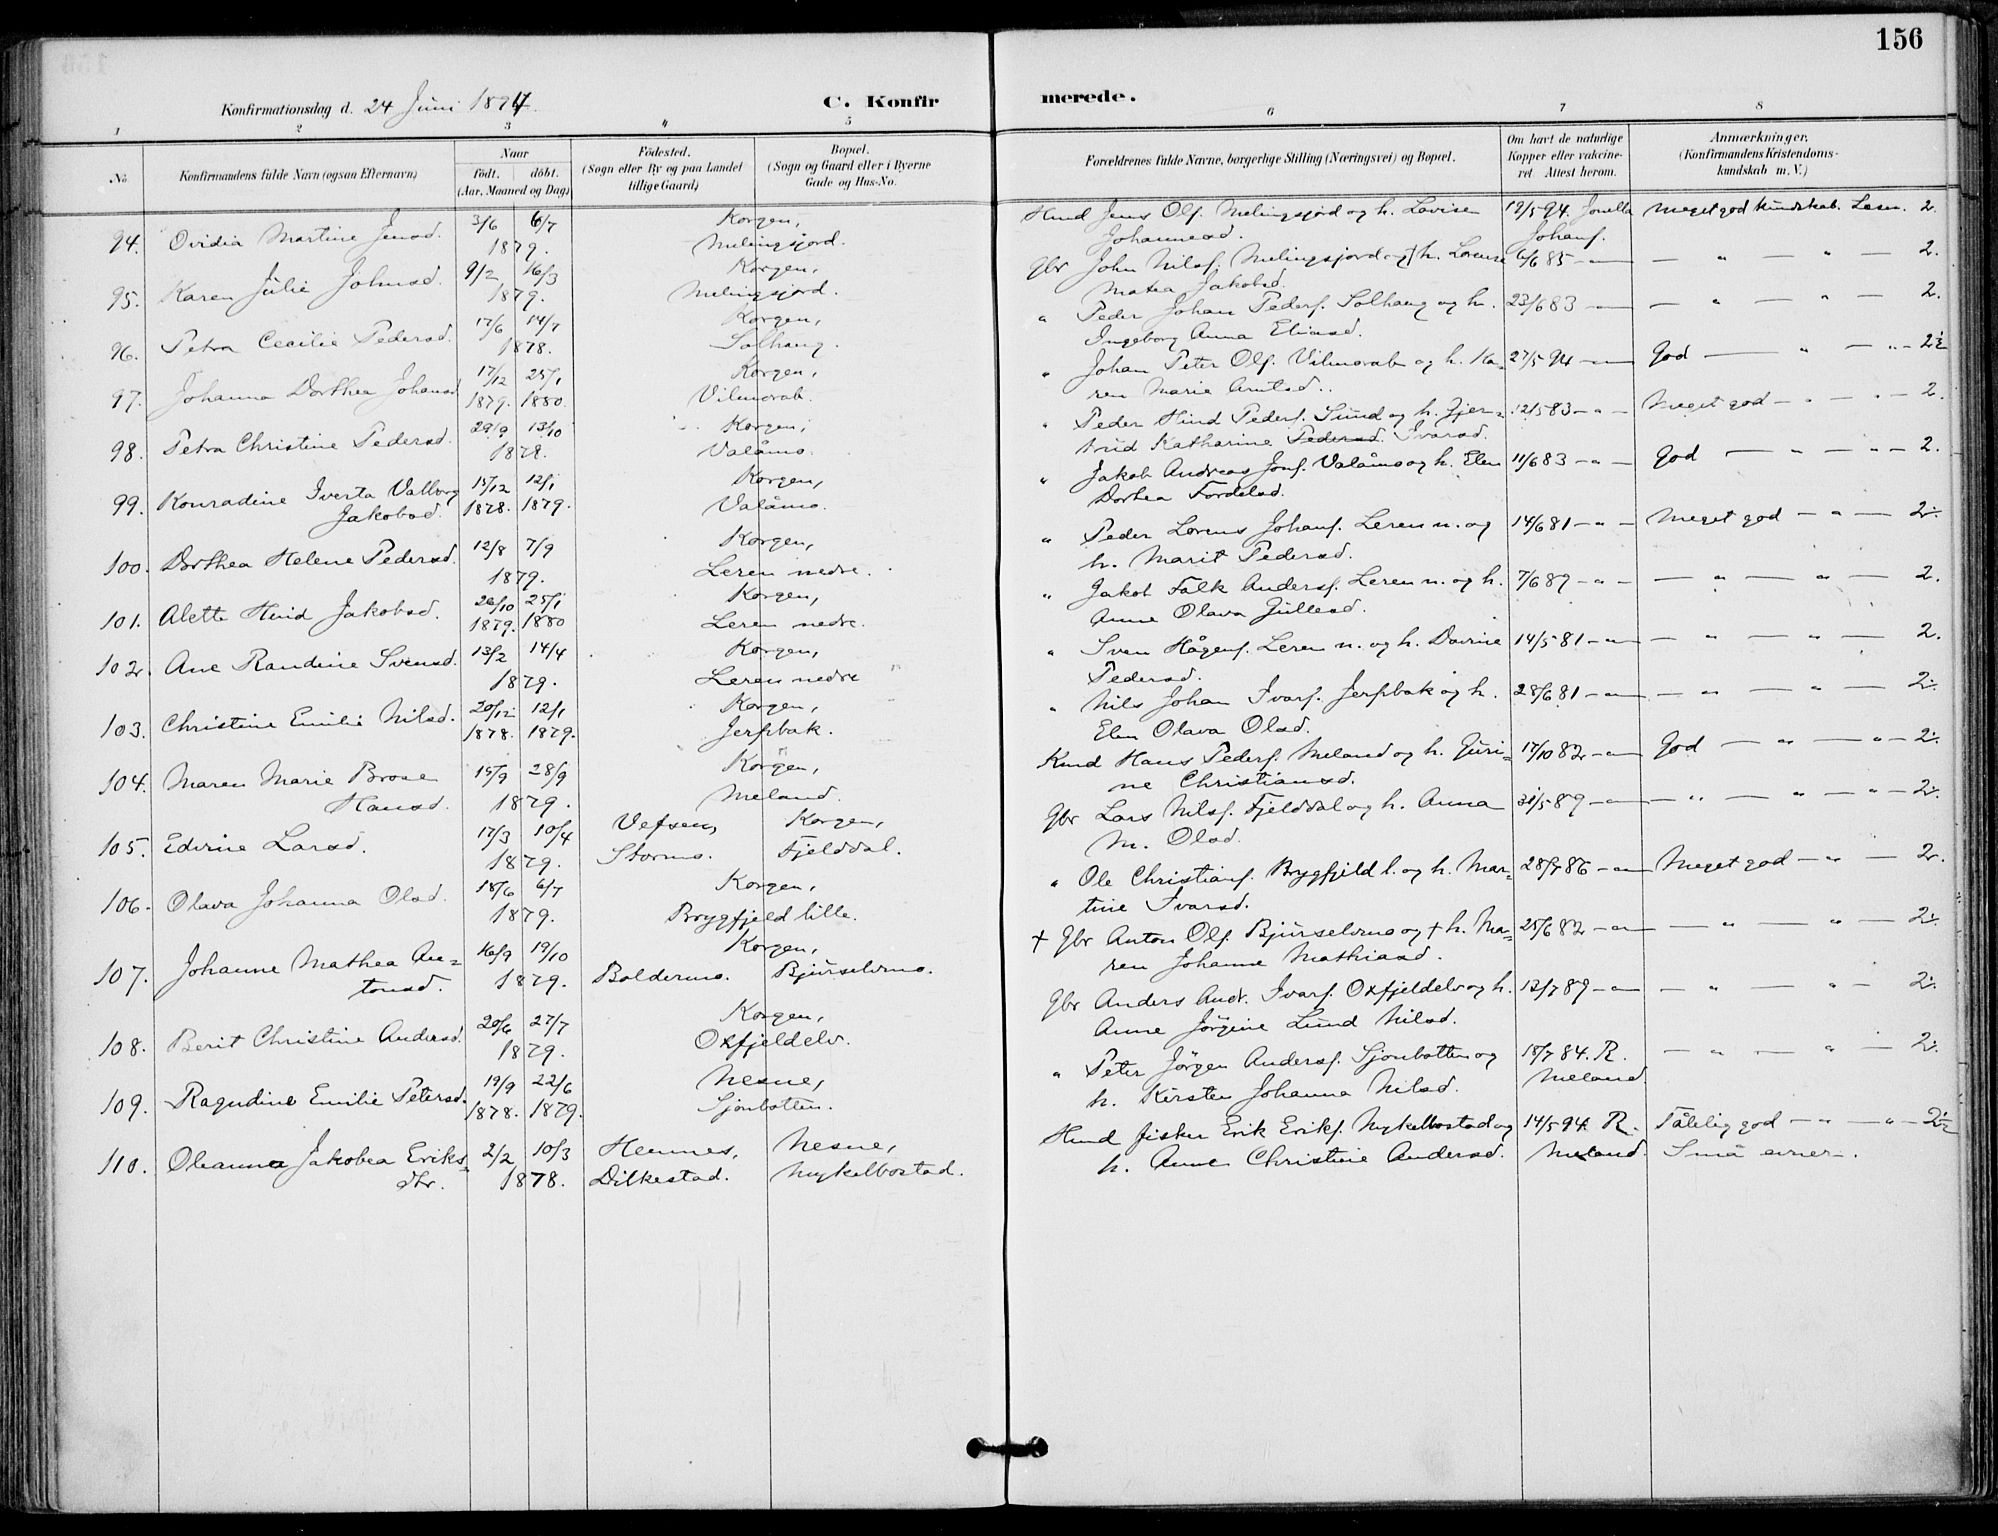 156
Konfirmationsdag d. 24 Juni 1894. C. Konfirmerede.
1 2 3 4 5 6 7 8
No. Konfirmandens fulde Navn (ogsaa Efternavn) Naar født. døbt. (Aar, Maaned og Dag) Födested. (Sogn eller By og paa Landet tillige Gaard) Bopæl. (Sogn og Gaard eller i Byerne Gade og Hus-No. Forældrenes fulde Navne, borgerlige Stilling (Næringsvei) og Bopæl. Om havt de naturlige Kopper eller vakcineret. Attest herom. Anmærkninger. (Konfirmandens Kristendomskundskab m. V.)
94. Ovidia Martine Jensd. 3/6 6/7 Korgen, Hmd Jens Olf. Melingsjord og h. Lovise 19/5 94. Jonella Meget god kundskab. Læsn. 2.
1879. Melingsjord. Johannesd. Johanf.
95. Karen Julie Johnsd. 9/2 16/3 Korgen, Gbr John Nilsf. Melingsjord og h. Lorense 6/6 85 — " — — " — " — 2.
1879. Melingsjord. Matea Jakobsd.
96. Petra Cecilie Pedersd. 17/6 14/7 Korgen, " Peder Johan Pedersf. Solhaug og h. 23/6 83 — " — — " — " — 2.
1878. Solhaug. Ingeborg Anna Eliasd.
97. Johanna Dorthea Johansd. 17/12 25/1 Korgen, " Johan Peter Olf. Vilmorab og h. Ka- 27/5 94 — " — God — " — " — 2½
1879. 1880. Vilmorab. ren Marie Arntsd.
98. Petra Christine Pedersd. 29/9 13/10 Korgen, " Peder Hind Pedersf. Lund og h. Gjer- 12/5 83 — " — Meget god — " — " — 2.
1878. Valåmo. trud Katharine Pedersd. Ivarsd.
99. Konradine Iverta Valborg 15/12 12/1 Korgen, " Jakob Andreas Jonf. Valåmo og h. Elen 11/6 83 — " — God — " — " — 2.
Jakobsd. 1878. 1879. Valåmo. Dorhea Fordelsd.
100. Dorthea Helene Pedersd. 12/8 7/9 Korgen, " Peder Lorens Johanf. Leren n. og 14/6 81 — " — Meget god — " — 2.
1879. Leren nedre. h. Marit Pedersd.
101. Alette Hind Jakobsd. 26/10 25/1 Korgen, " Jakob Falk Andersf. Leren n. og h. 7/6 89 — " — — " — " — 2.
1879. 1880 Leren nedre. Anne Olava Gullesd.
102. Ane Randine Svensd. 13/2 14/4 Korgen, " Sven Hågenf. Leren n. og h. Dorine 14/5 81 — " — — " — " — 2.
1879. Leren nedre Pedersd.
103. Christine Emilie Nilsd. 20/12 12/1 Korgen, " Nils Johan Ivarf. Jerpbak og h. 28/6 81 — " — — " — " — 2.
1878. 1879. Jerpbak. Elen Olava Olsd.
104. Maren Marie Brose 15/9 28/9 Korgen, Kmd Hans Pedersf. Meland og h. Guri- 17/10 82 — " — God — " — " — 2.
Hansd. 1879. Meland. ne Christiansd.
105. Edvine Larsd. 17/3 10/4 Vefsen, Korgen, Gbr Lars Nilsf. Fjelddal og h. Anna 31/5 89 — " — — " — " — " — 2.
1879. Stormo. Fjelddal. M. Olsd.
106. Olava Johanna Olsd. 18/6 6/7 Korgen, " Ole Christianf. Brygfjeld l. og h. Mar- 28/7 86 — " — Meget god — " — 2.
1879. Brygfjeld lille. tine Ivarsd.
107. Johanne Mathea An- 16/9 19/10 Korgen, + Gbr Anton Olf. Bjurselvmo og + h. Ma- 25/6 82 — " — — " — " — 2.
tonsd. 1879. Boldermo. Bjurselvmo. ren Johanne Mathiasd.
108. Berit Christine Andersd. 20/6 27/7 Korgen, Gbr Anders Andr. Ivarf. Oxfjeldelv og h. 13/7 89 — " — — " — " — 2.
1879. Oxfjeldelv. Anne Jørgine Lund Nilsd.
109. Ragndine Emilie Petersd. 19/9 22/6 Nesne, " Peter Jörgen Andersf. Sjonbotten og 18/7 84. R. — " — " — 2.
1878. 1879. Sjonbotten. h. Kirsten Johanna Nilsd. Meland
110. Oleanna Jakobea Eriks- 2/2 10/3 Hemnes, Nesne, Hmd fisker Erik Erikf. Nykelbostad og 14/5 94. R. Tålelig god — " — " — 2½
dtr. 1878. Dilkestad. Nykelbostad. h. Anne Christine Andersd. Meland. Små evner.